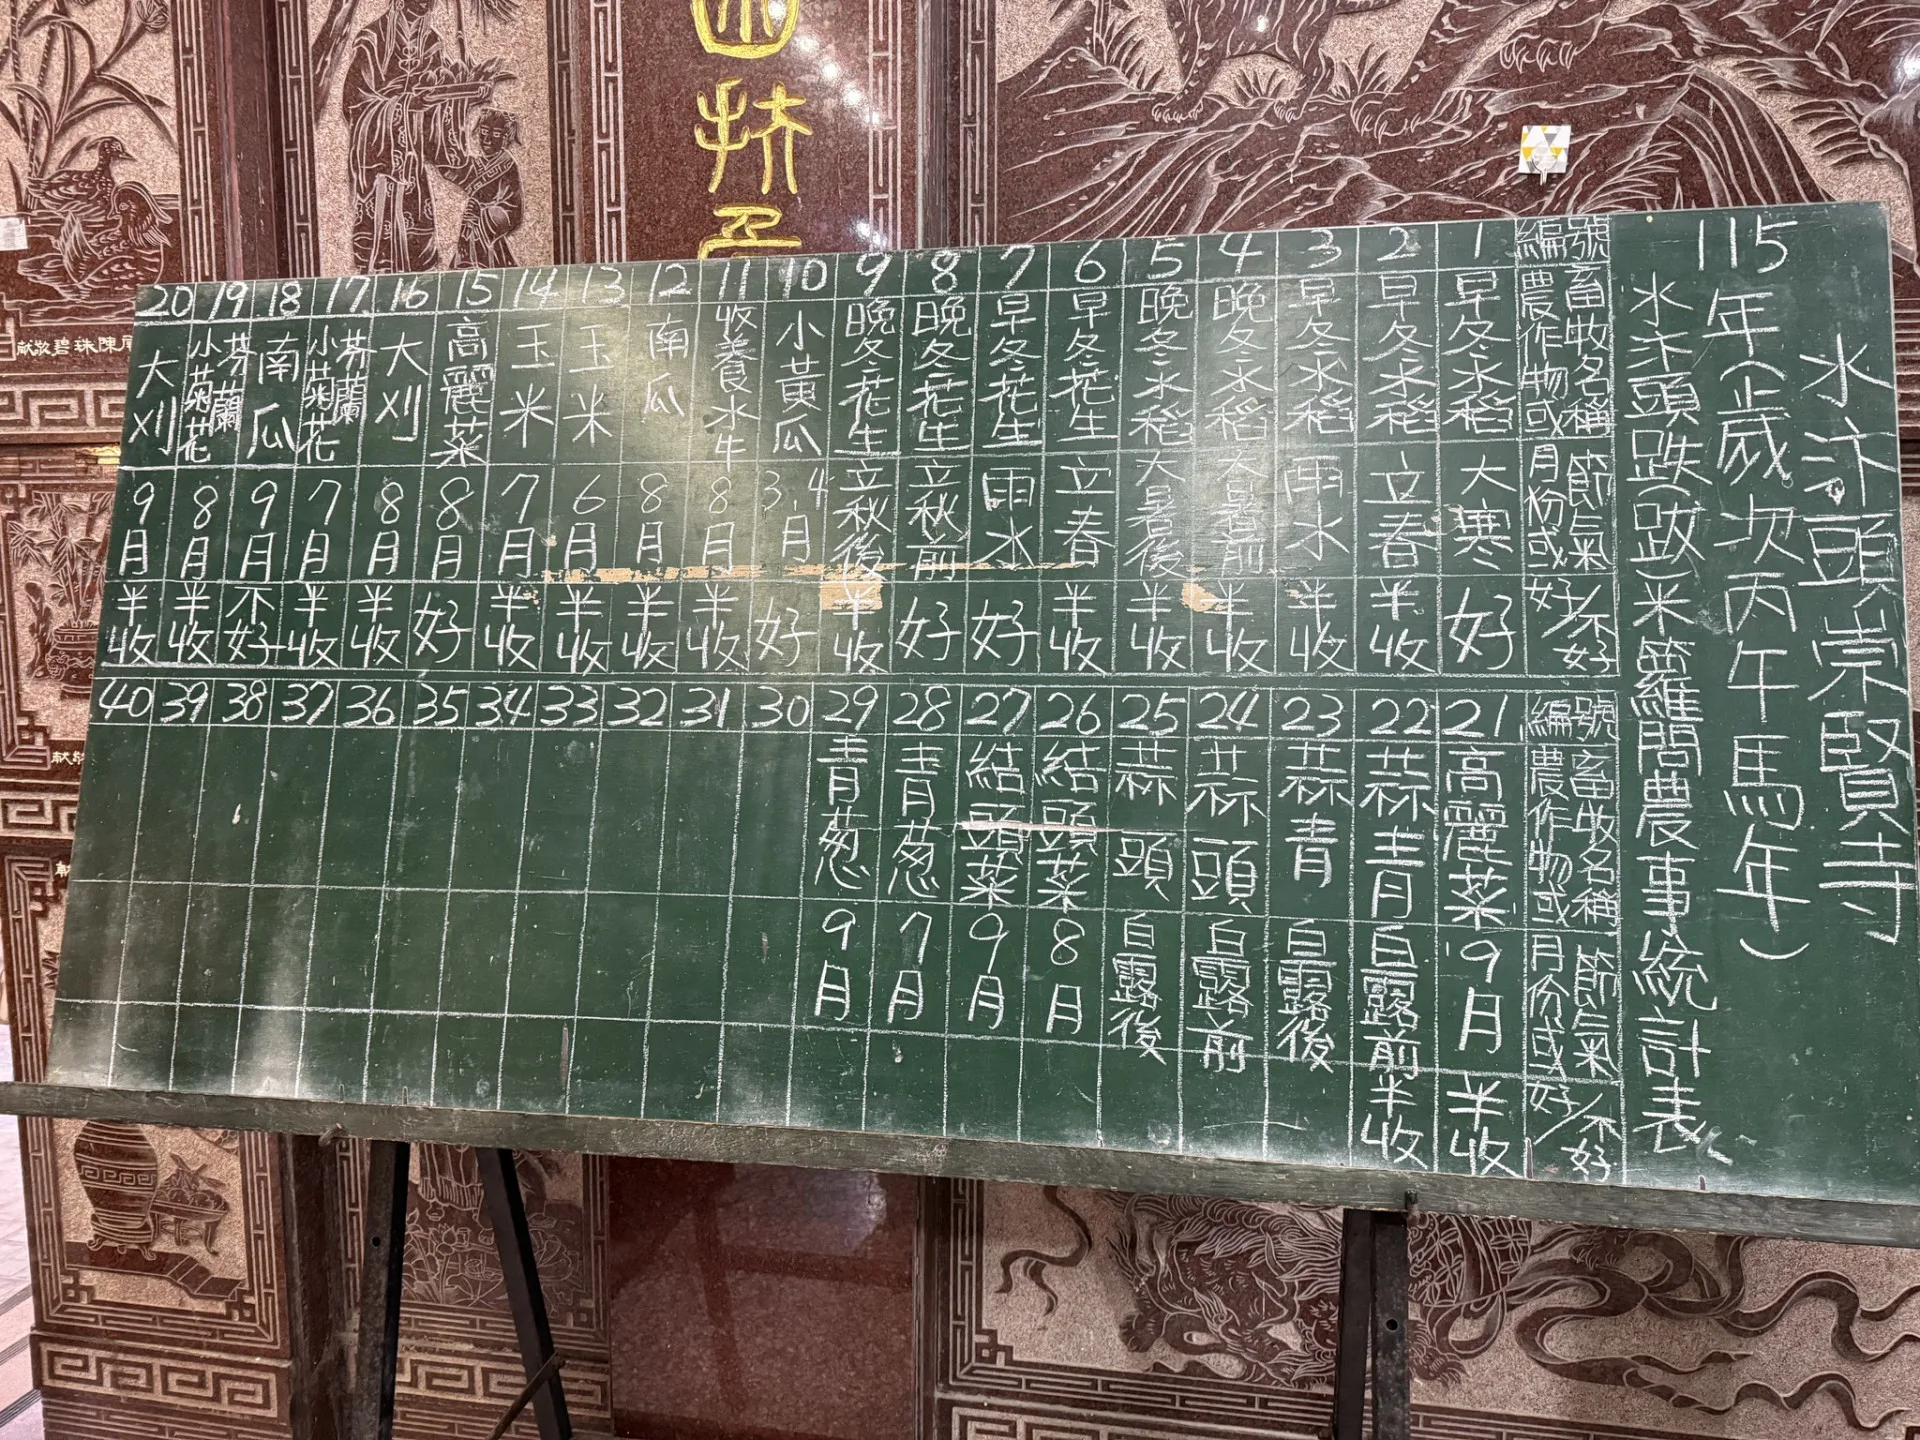 水汴頭崇賢寺
115年(歲次丙午馬年)
水汴頭跌(跋)米籮問農事統計表
編號 畜牧名稱農作物或 節氣月份或 好/不好
1 早冬水稻 大寒 好
2 早冬水稻 立春 半收
3 早冬水稻 雨水 半收
4 晚冬水稻 大暑前 半收
5 晚冬水稻 大暑後 半收
6 早冬花生 立春 半收
7 早冬花生 雨水 好
8 晚冬花生 立秋前 好
9 晚冬花生 立秋後 半收
10 小黃瓜 3.4月 好
11 收養水牛 8月 半收
12 南瓜 8月 半收
13 玉米 6月 半收
14 玉米 7月 半收
15 高麗菜 8月 好
16 大刈 8月 半收
17 芬蘭小菊花 7月 半收
18 南瓜 9月 不好
19 芬蘭小菊花 8月 半收
20 大刈 9月 半收
編號 畜牧名稱農作物或 節氣月份或 好/不好
21 高麗菜 9月 半收
22 蒜青 白露前 半收
23 蒜青 白露後
24 蒜頭 白露前
25 蒜頭 白露後
26 結頭菜 8月
27 結頭菜 9月
28 青葱 7月
29 青葱 9月
30
31
32
33
34
35
36
37
38
39
40